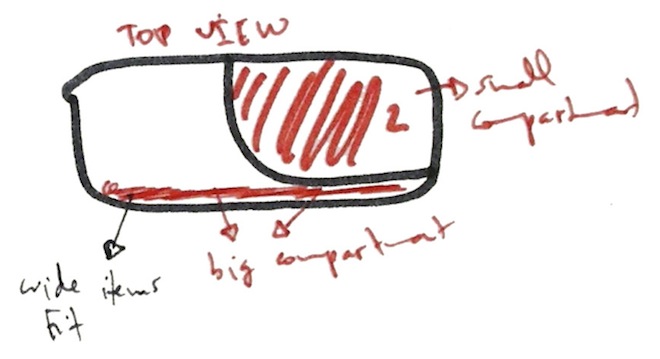 TOP VIEW
small
compartment
2
big compartment
wide items
fit